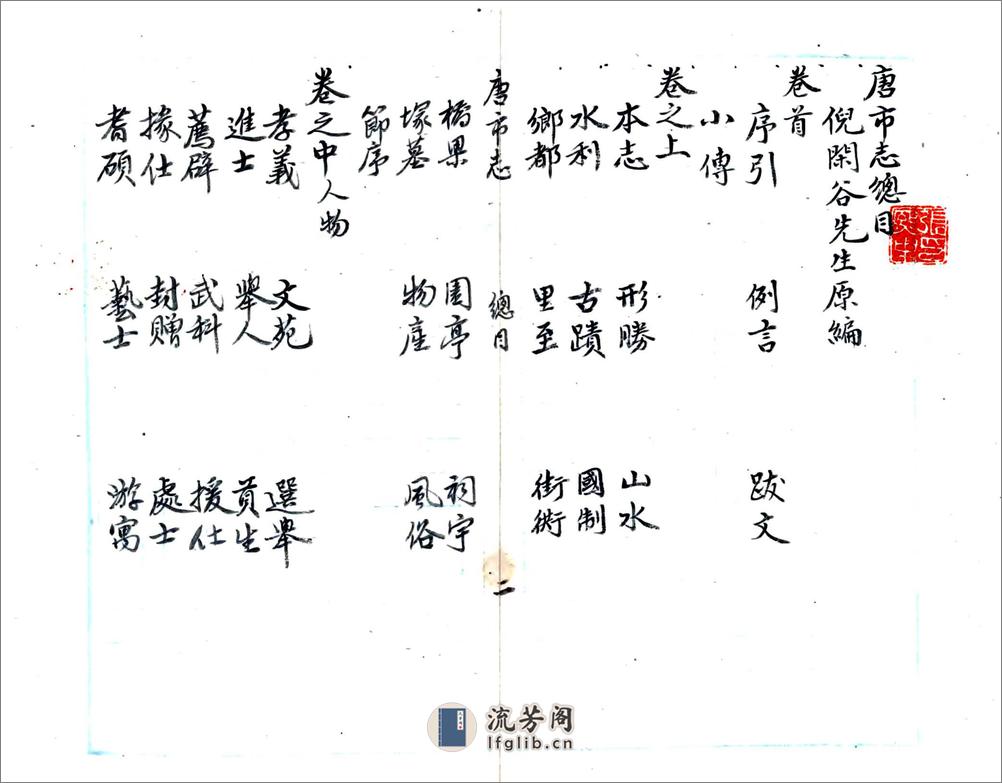 唐市志總目
倪閑谷先生原編
卷首
序引 例言 跋文
小傳
卷之上
本志 形勝 山水
水利 古蹟 國制
鄉都 里至 街衖
唐市志 總目 二
橋梁 園亭 祠宇
塚墓 物產 風俗
節序
卷之中人物
孝義 文苑 選舉
進士 舉人 貢生
薦辟 武科 援仕
掾仕 封贈 處士
耆碩 藝士 游寓
流芳阁
lfglib.cn